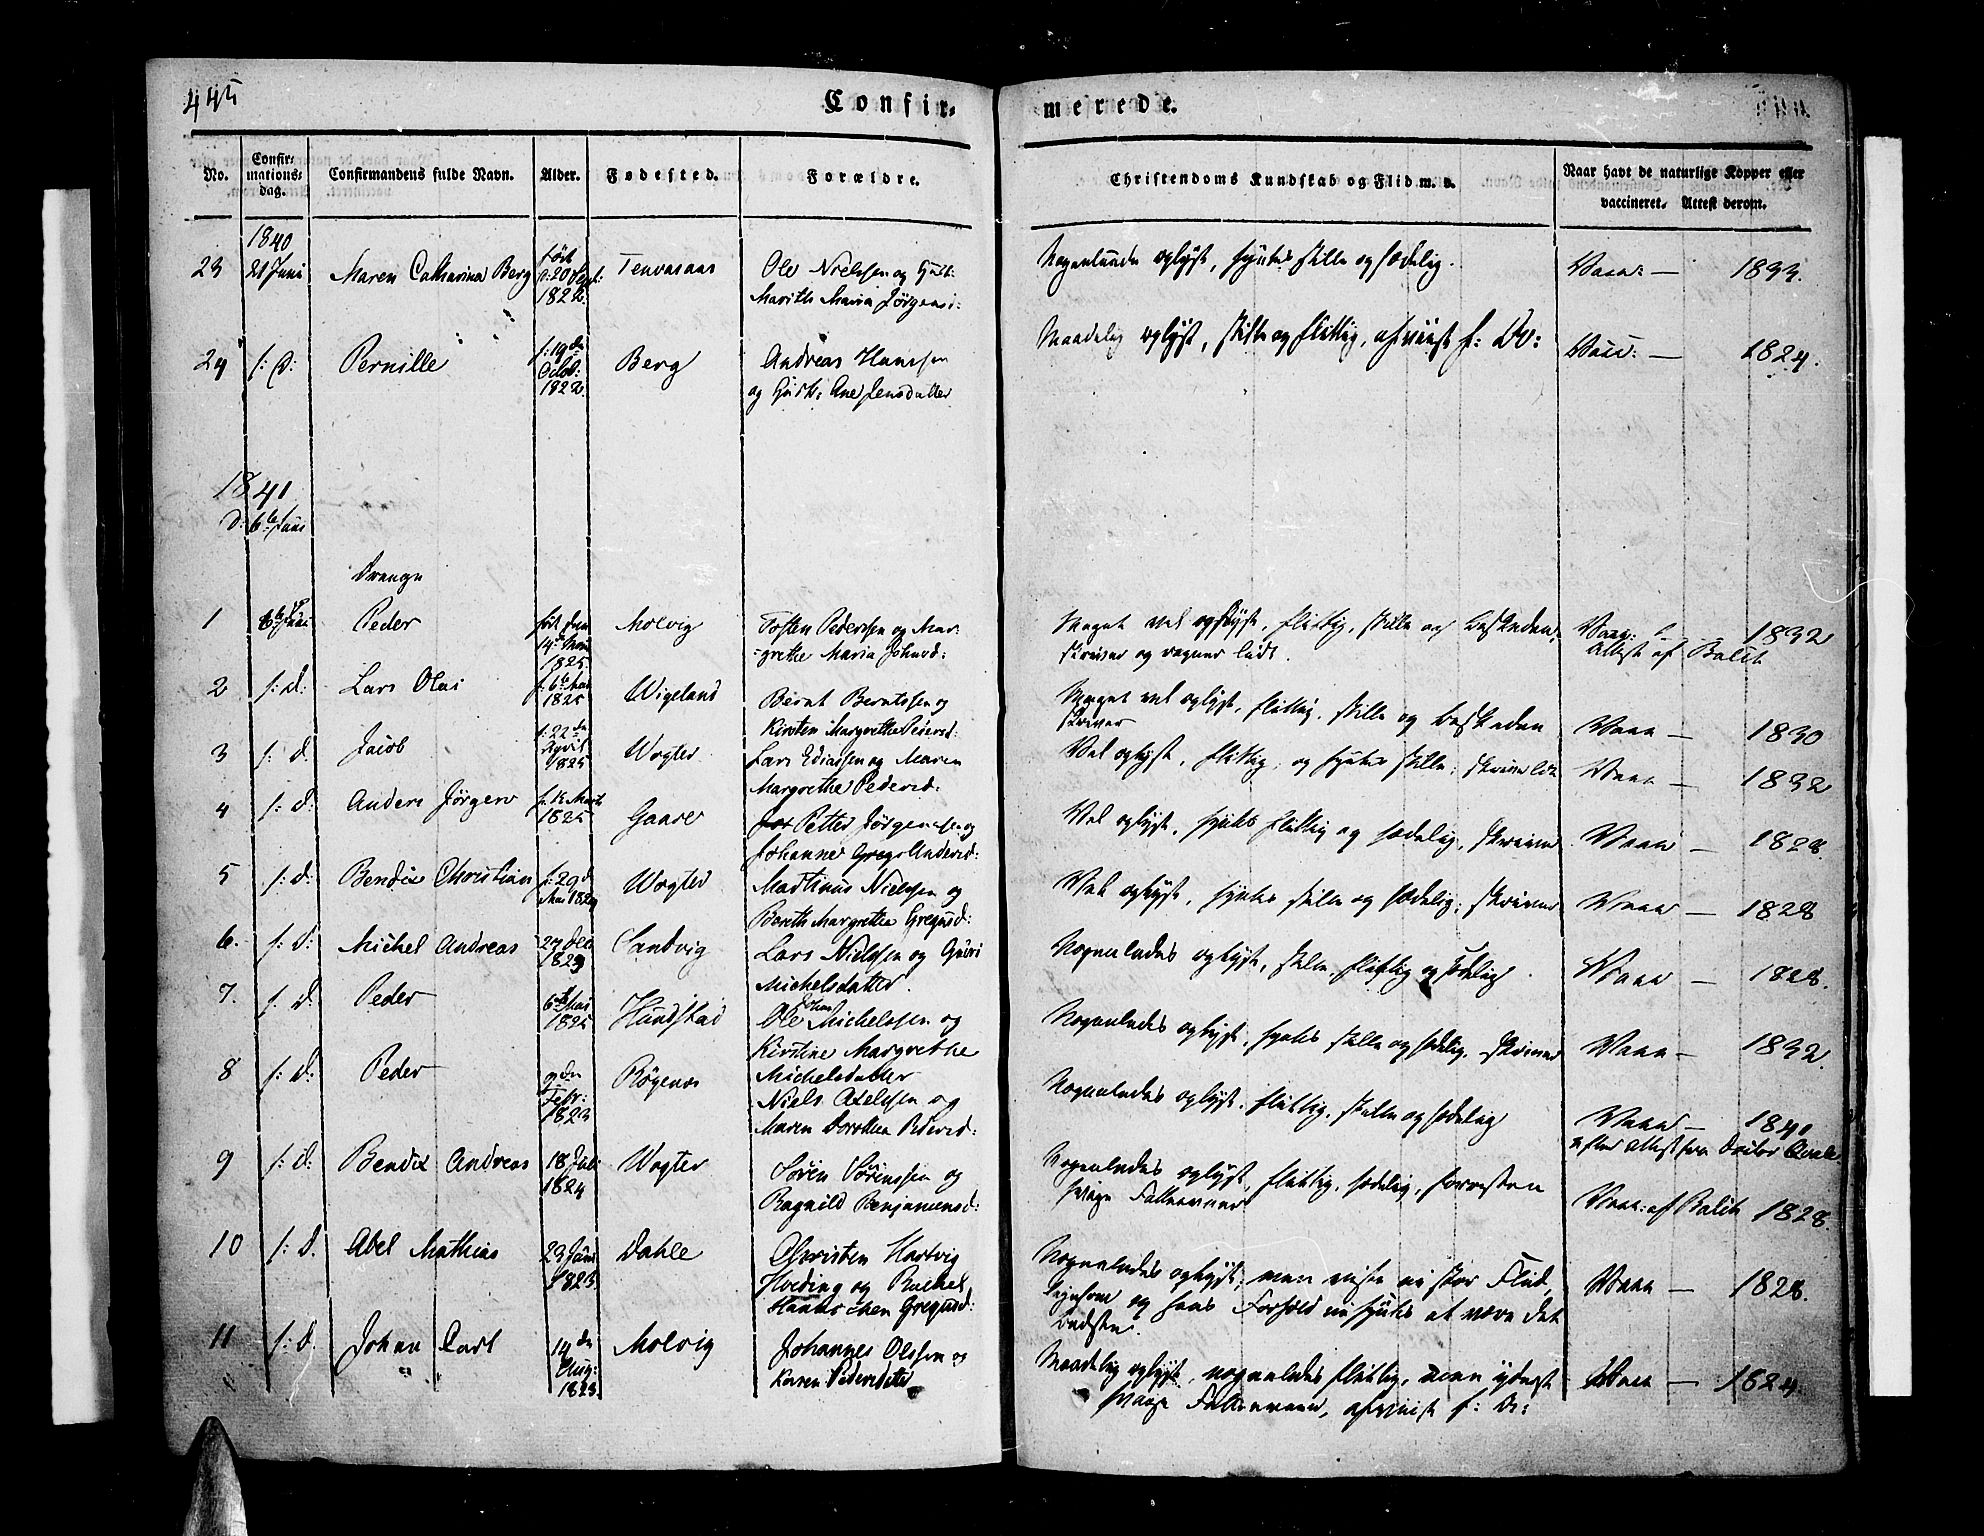 445
Confir-
merede.
No.
Confir-
mations-
dag.
Confirmandens fulde Navn.
Alder.
Fødested.
Forældre.
Christendoms Kundskab og Flid m. v.
Naar havt de naturlige Kopper eller
vaccineret. Attest derom.
1840
23 21 Juni Maren Catharina Berg født d: 20 Sept: 1822 Tenvasaas Ole Nielssen og Hust:
Marith Maria Jørgensd:
Nogenlunde oplyst, synes stille og sædelig. Vacc: — 1833.
24 s: D: Pernille f: 19de Octob: 1822 Berg Andreas Hanssen
og Hustr: Ane Jensdatter
Maadelig oplyst, stille og flittig, afviist f: A: Vacc: — 1824.
1841
D: 6te Juni
Drenge
1 6te Juni Peder født den 14de Mai 1825 Molvig Tosten Pederssen og Mar-
grethe Maria Johnsd:
Meget vel oplyst, flittig, stille og beskeden,
skriver og regner lidt.
Vacc: 1832
Attest af Balch
2 s: d: Lars Olai f: 6te Mai 1825 Wigeland Bernt Berntssen og
Kirsten Margrethe Pedersd:
Meget vel oplyst, flittig, stille og beskeden
skriver
Vacc — 1830
3 s: d: Jacob f: 22de April 1825 Wogter Lars Ediassen og Maren
Margrethe Pedersd:
Vel oplyst, flittig, og synes stille; skriver lidt Vacc — 1832
4 s: d: Anders Jørgen 1825 Gaare Petter Jørgenssen og
Johanne Andersd:
Vel oplyst, synes flittig og sædelig, skriver Vacc — 1828.
5 s: d: Bendix Christian f: 29de Mai 1824 Wogter Martinus Nielssen og
Bereth Margrethe Gregusd:
Vel oplyst, synes stille og sædelig; skriver Vacc — 1828
6. s: d: Michel Andreas 27 Dec 1823 Sandvig Lars Nielssen og Guri
Michelsdatter.
Nogenledes oplyst, stille, flittig og sædelig. Vacc — 1828.
7. s: d. Peder 6te Mai 1825 Hundstad Ole Johan Michelssen og
Kirstine Margrethe
Michelsdatter
Nogenledes oplyst, synes stille og sædelig. skriver Vacc — 1832.
8 s: d: Peder 2den Febr: 1823 Røgenes Niels Axelssen og
Maren Dorothea Pedersd:
Nogenledes oplyst. flittig. stille og sædelig Vacc — 1841
efter Attest fra Doctor
9 s: d: Bendix Andreas 18 Juli 1824 Wogter Søren Sørenssen og
Ragnild Benjaminsd:
Nogenledes oplyst, flittig, sædelig, forresten
svage Fatteevner
Vacc: af Balch 1828.
10 s: d. Abel Mathias 23 Juni 1823 Dahle Christen Hartvig
Hveding og Rachel
Gregusd:
Nogenledes oplyst; men viser ei stor Flid,
og hans Forhold ei synes at være det
bedste.
Vacc — 1828.
11 s: d. Johan Carl 14de Aug: 1823. Molvig Johannes Olssen og
Karen Pedersdatter
Maadelig oplyst, nogenledes flittig, men yderst
svage Fatteevner, afviist f: A:
Vacc — 1824.